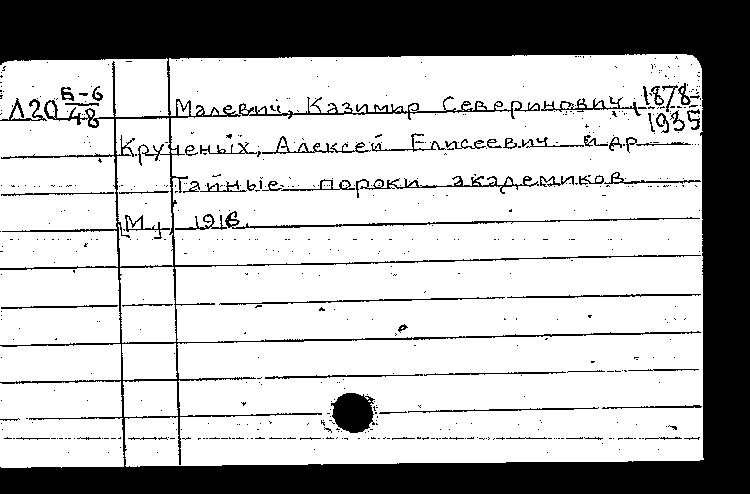 Л20 Б-6/48 Малевич, Казимир Северинович, 1878-1935
Крученых, Алексей Елисеевич и др
Тайные пороки академиков
[М.], 1916.